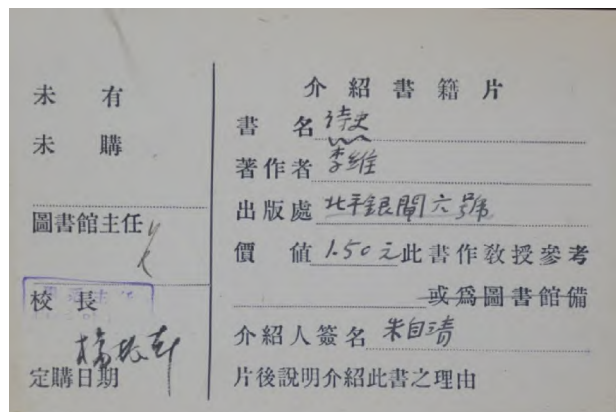 未 有
未 購
圖書館主任
校 長
楊振声
定購日期
介 紹 書 籍 片
書 名 诗史
著作者 李维
出版處 北平銀閘六號
價 值 1.50元此書作教授參考
或爲圖書館備
介紹人簽名 朱自清
片後説明介紹此書之理由